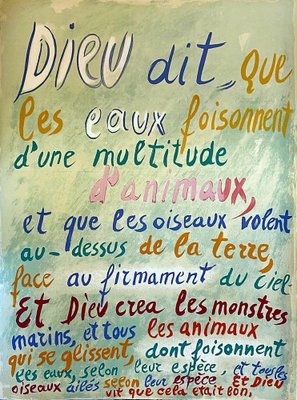 Dieu dit, que
les eaux foisonnent
d'une multitude
d'animaux,
et que les oiseaux volent
au-dessus de la terre,
face au firmament du ciel-
Et Dieu crea les monstres
marins, et tous les animaux
qui se glissent, dont foisonnent
les eaux, selon leur espèce, et tous les
oiseaux ailés selon leur espèce Et Dieu
vit que cela etait bon,